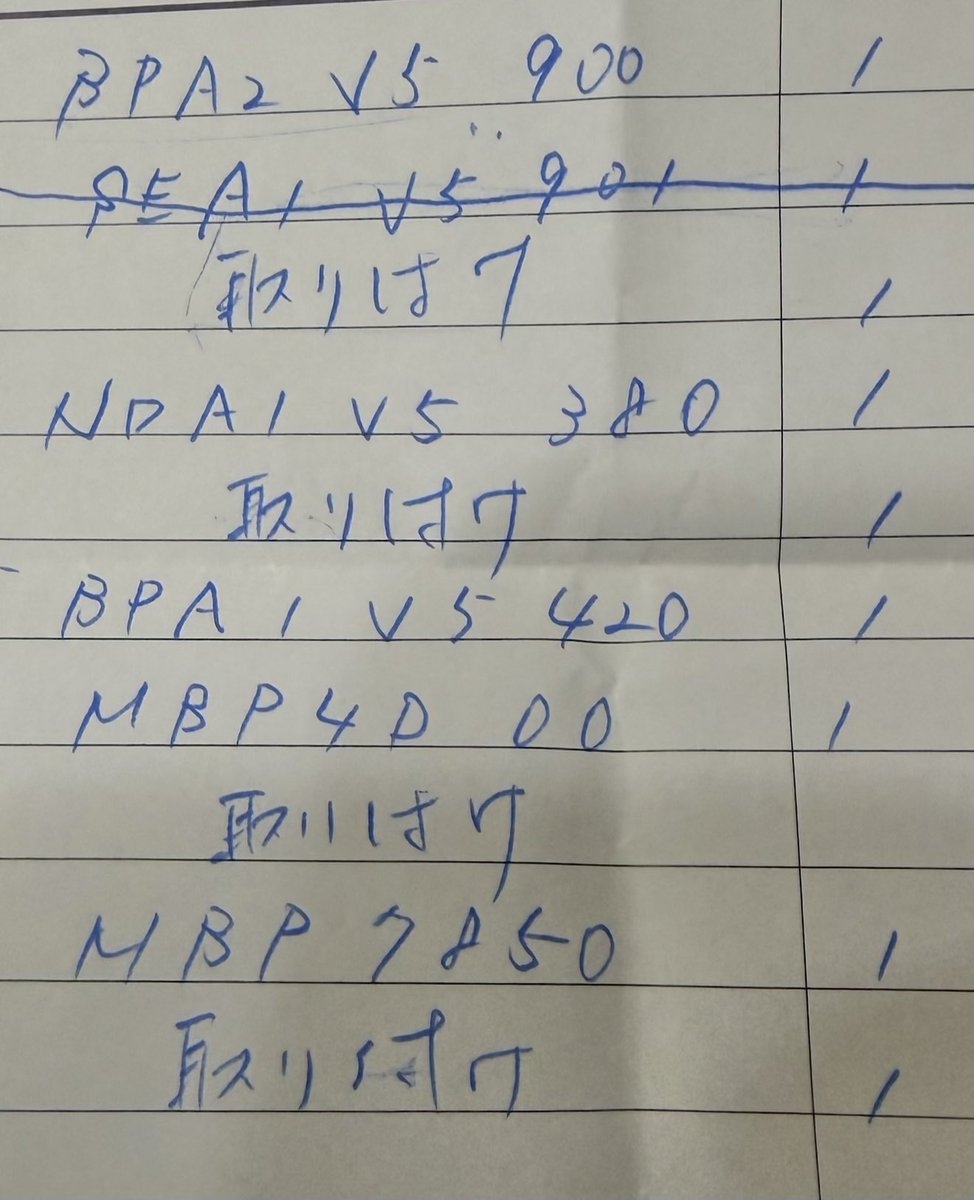 BPA2 V5 900 1
PEA1 V5 901 1
取り付け 1
NDA1 V5 380 1
取り付け 1
BPA1 V5 420 1
MBP4D 00 1
取り付け
MBP 7850 1
取り付け 1